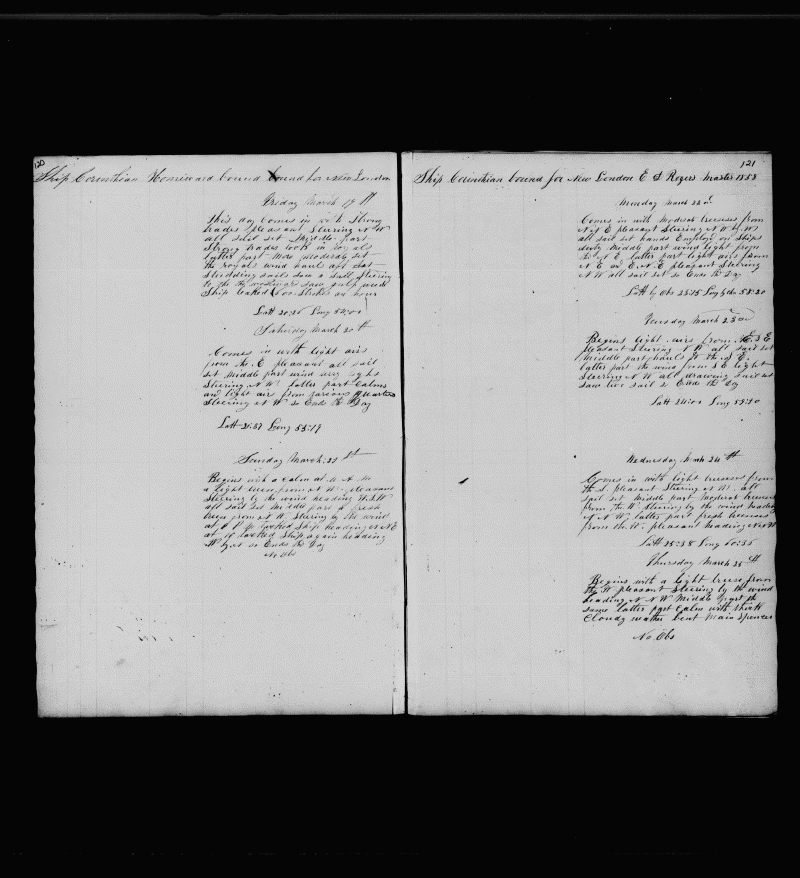 120
Ship Corinthian Homeward bound bound for New London
Friday March 19th
This day Comes in with Strong
trades pleasant Steering N W
all sail set Middle part
Strong trades took in royals
latter part More moderate set
the royals wind hauls aft set
Studding sails saw a sail Steering
to the saw gulp weed
Ship leaked 600 Strokes an hour
Latt 20:36 Long 52:00
Saturday March 20th
Comes in with light airs
from the E pleasant all sail
set Middle part wind very light
Steering N W latter part Calms
and light airs from various quarters
Steering N W so Ends the Day
Latt 21:59 Long 53:19
Sunday March 21st
Begins with a calm at M
a light breeze from N W pleasant
Steering by the wind heading W S W
all sail set Middle part a fresh
breeze from N W Steering by the wind
at P M tacked Ship heading N N E
at tacked Ship again heading
W by S so Ends the Day
No Obs
121
Ship Corinthian bound for New London E S Rogers Master 1858
Monday March 22d
Comes in with Moderate breezes from
N E pleasant Steering N W by W
all sail set hands Employ on Ships
duty Middle part wind light from
the N E latter part light airs from
N E an E N E pleasant Steering
N W all sail set so Ends the Day
Latt by Obs 23:15 Long by Chr 58:20
Tuesday March 23d
Begins light airs from E S E
pleasant Steering N W all sail set
Middle part hauls to the S E
latter part the wind from S E light
Steering N W all drawing sail set
saw two sail so Ends the Day
Latt 24:00 Long 59:20
Wednesday March 24th
Comes in with light breezes from
the S. pleasant Steering N W all
sail set Middle part Moderate breezes
from the W Steering by the wind heading
N N W latter part fresh breezes
from the W. pleasant heading N N W
Latt 25:38 Long 60:35
Thursday March 25th
Begins with a light breeze from
the W pleasant Steering by the wind
heading N N W Middle part the
same latter part Calm with thick
Cloudy wather bent Main Spencer
No Obs